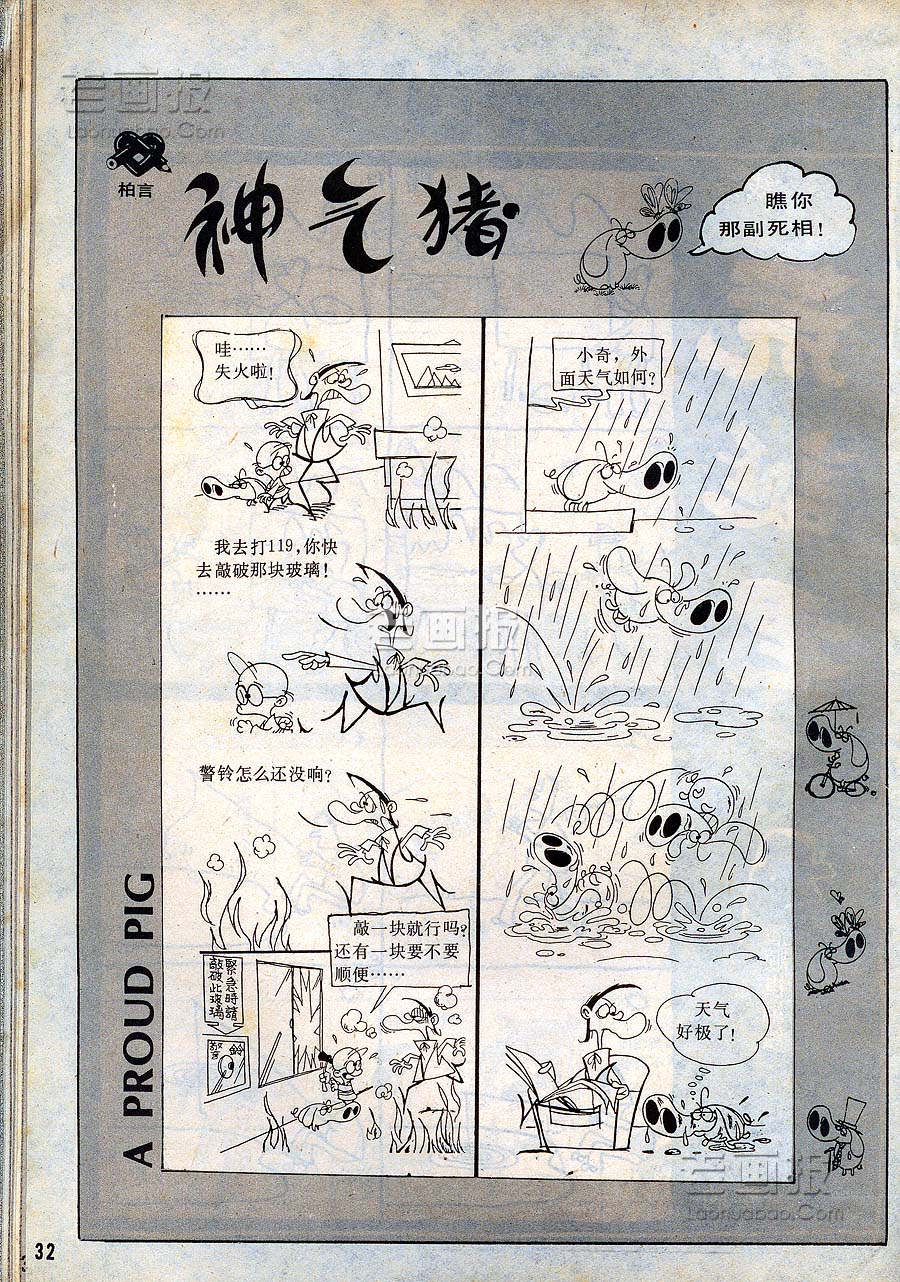 老画报
Laohuabao.Com
柏言
神气猪
瞧你
那副死相!
哇……
失火啦!
我去打119,你快
去敲破那块玻璃!
……
警铃怎么还没响?
敲一块就行吗?
还有一块要不要
顺便……
緊急時請
敲破此玻璃
警鈴
小奇,外
面天气如何?
天气
好极了!
A PROUD PIG
老画报
Laohuabao.Com
老画报
Laohuabao.Com
32